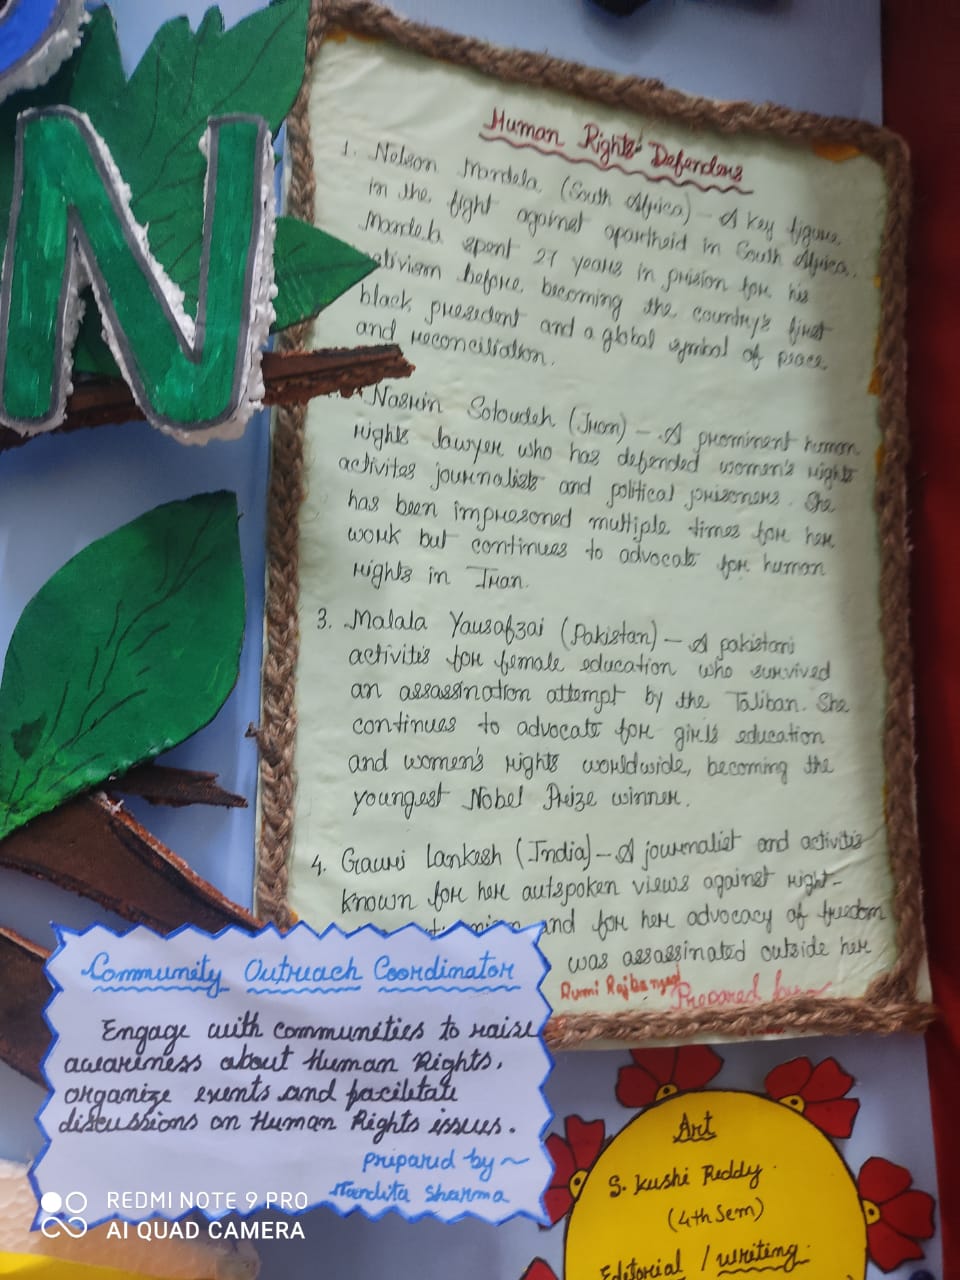 N
Human Rights' Defenders
1. Nelson Mandela (South Africa) – A key figure
in the fight against apartheid in South Africa.
Mandela spent 27 years in prision for his
ativism before becoming the country's first
black president and a global symbol of peace
and reconciliation.
Nasrin Sotoudeh (Iran) – A prominent human
rights lawyer who has defended women's rights
activites journalists and political prisoners. She
has been impresoned multiple times for her
work but continues to advocate for human
rights in Iran.
3. Malala Yausafzai (Pakistan) – A pakistani
activitis for female education who survived
an assassination attempt by the Taliban. She
continues to advocate for girls education
and women's rights worldwide, becoming the
youngest Nobel Prize winner.
4. Gauri Lankesh (India) – A journalist and activitis
known for her autspoken views against right-
and for her advocacy of freedom
was assassinated outside her
Rumi Rajbangshi Prepared by~
Community Outreach Coordinator
Engage with communities to raise
awareness about Human Rights,
organize events and facilitate
discussions on Human Rights issues.
pripared by ~
Nandita Sharma
Art
S. Kushi Reddy
(4th Sem)
Editorial / writing
REDMI NOTE 9 PRO
AI QUAD CAMERA